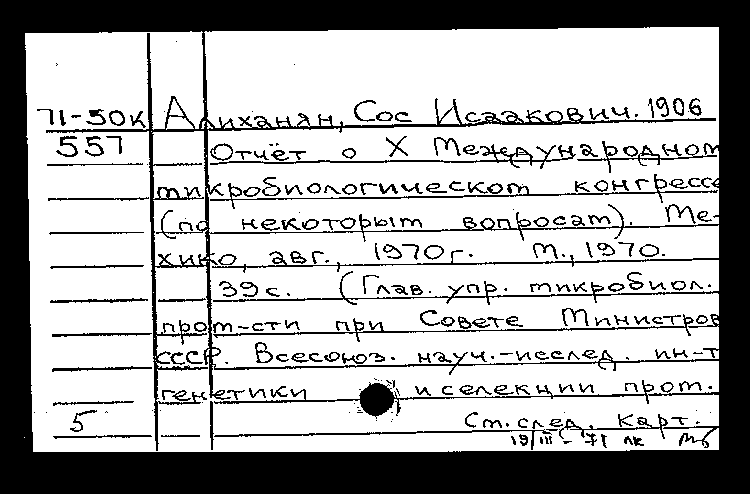 71-50к Алиханян, Сос Исаакович. 1906
557 Отчёт о X Международном
микробиологическом конгрессе
(по некоторым вопросам). Ме-
хико, авг., 1970г. М., 1970.
39с. (Глав. упр. микробиол.
пром-сти при Совете Министров
СССР. Всесоюз. науч.-исслед. ин-т
генетики и селекции пром.
5 См. след. карт.
19/III-71 лк